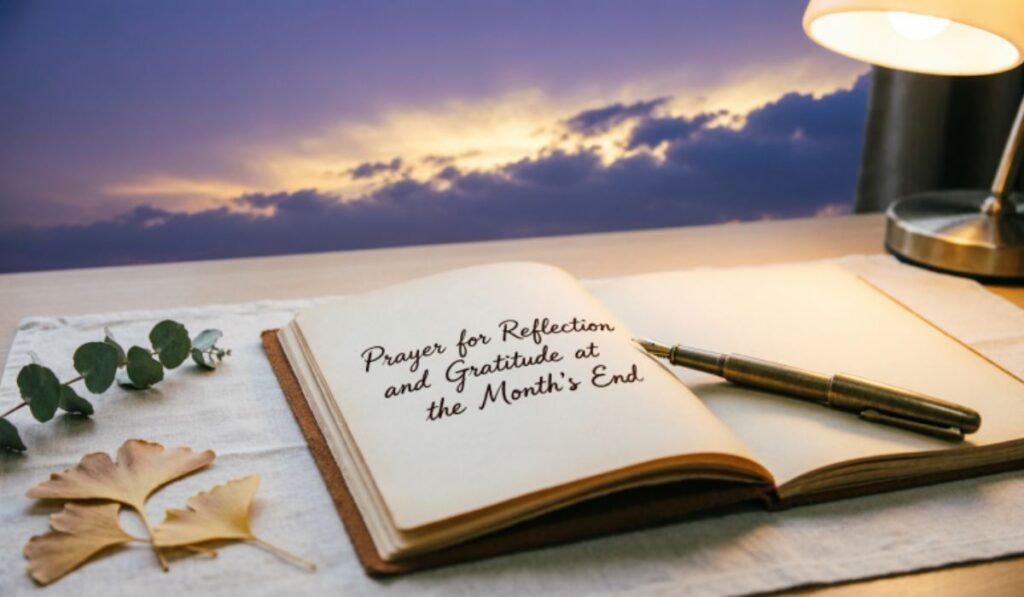 Prayer for Reflection
and Gratitude at
the Month's End